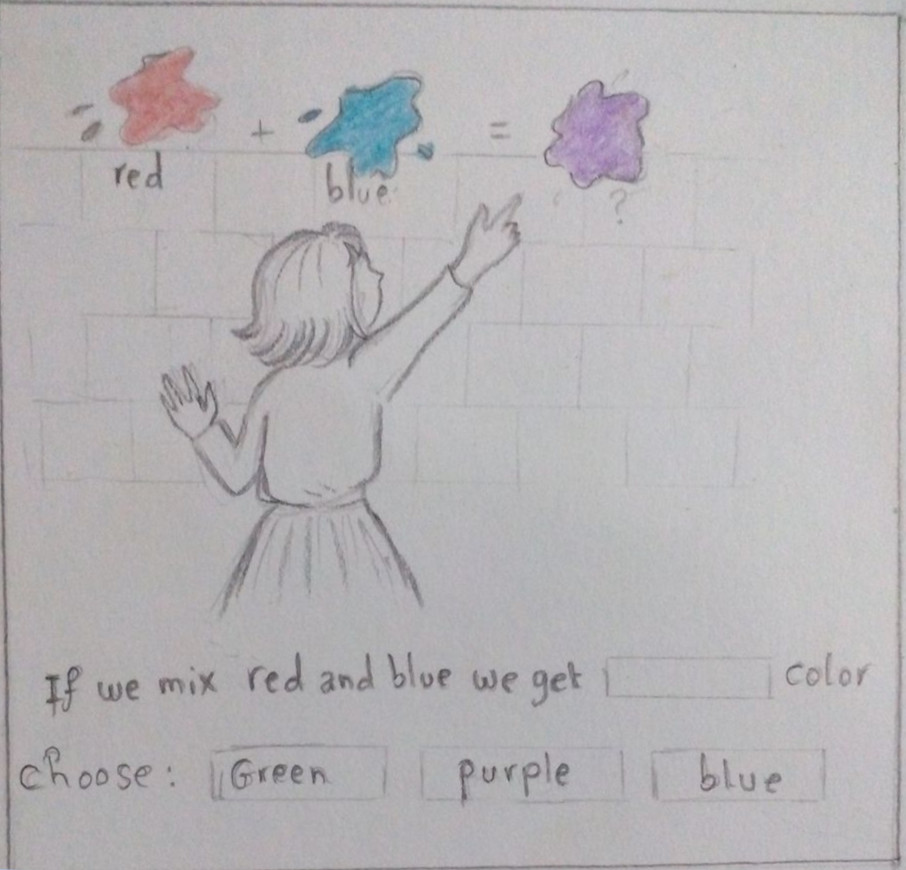 + =
red blue ?
If we mix red and blue we get color
choose: Green purple blue